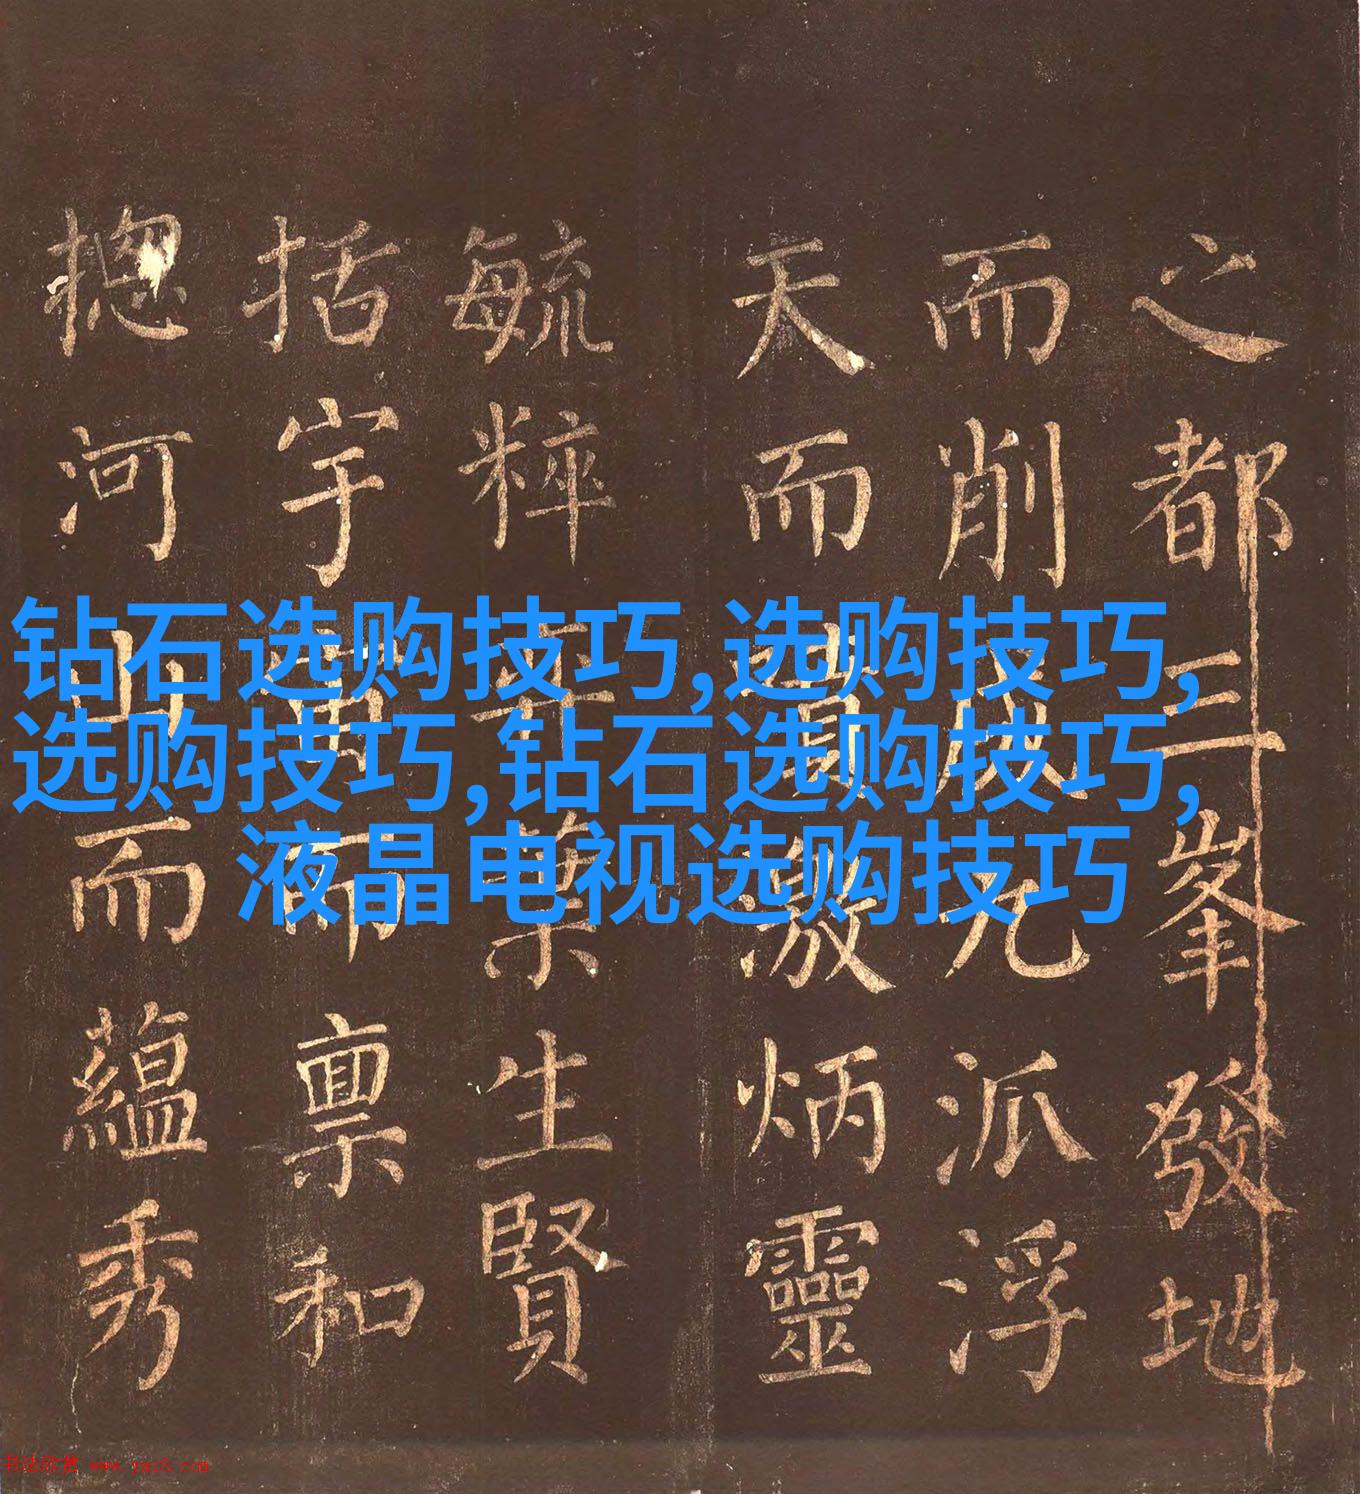 之都三峯發地
而削成九派浮
天而噴激炳靈
毓粹弈葉生賢
括宇宙而稟和
摠河山而蘊秀
钻石选购技巧,选购技巧,
选购技巧,钻石选购技巧,
液晶电视选购技巧
书法欣赏 www.yac8.com